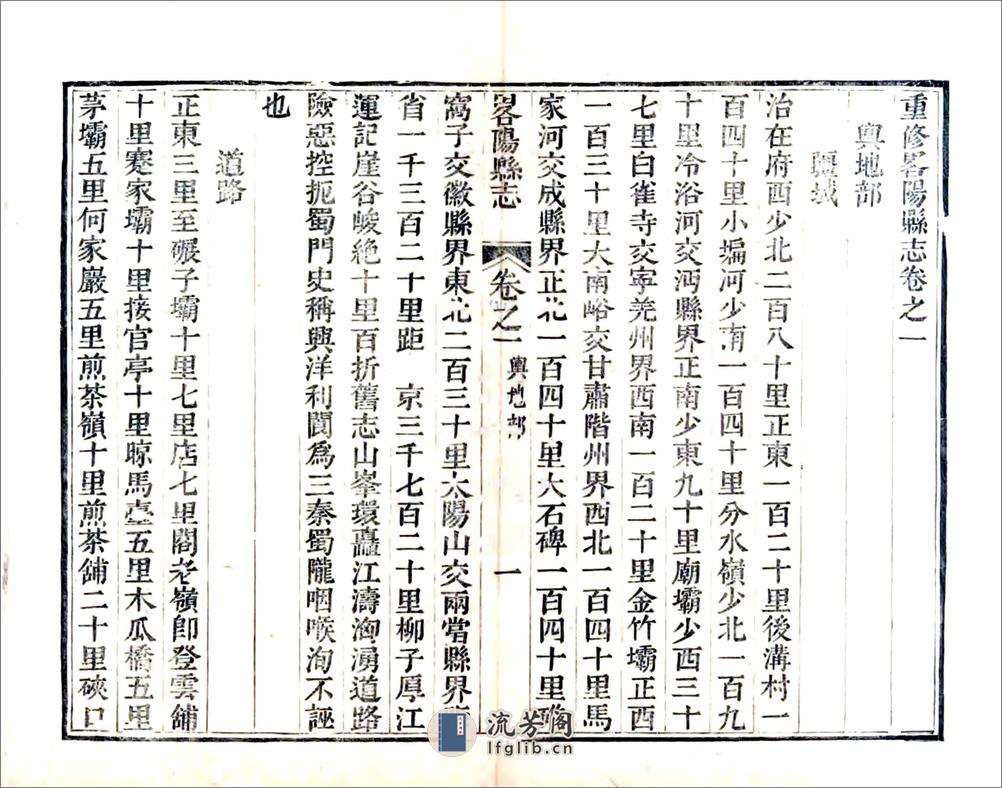 重修畧陽縣志卷之一
輿地部
疆域
治在府西少北二百八十里正東一百二十里後溝村一
百四十里小壖河少南一百四十里分水嶺少北一百九
十里冷浴河交沔縣界正南少東九十里廟壩少西三十
七里白雀寺交寧羌州界西南一百二十里金竹壩正西
一百三十里大南峪交甘肅階州界西北一百四十里馬
家河交成縣界正北一百四十里大石碑一百四十里
畧陽縣志 卷之一 輿地部 一
窩子交徽縣界東北二百三十里太陽山交兩當縣界
省一千三百二十里距 京三千七百二十里柳子厚江
運記崖谷峻絶十里百折舊志山峯環矗江濤洶湧道路
險惡控扼蜀門史稱興洋利閬爲三秦蜀隴咽喉洵不誣
也
道路
正東三里至碾子壩十里七里店七里閣老嶺卽登雲舖
十里蹇家壩十里接官亭十里晾馬臺五里木瓜橋五里
茅壩五里何家巖五里煎茶嶺十里煎茶舖二十里硤口
流芳阁
lfglib.cn